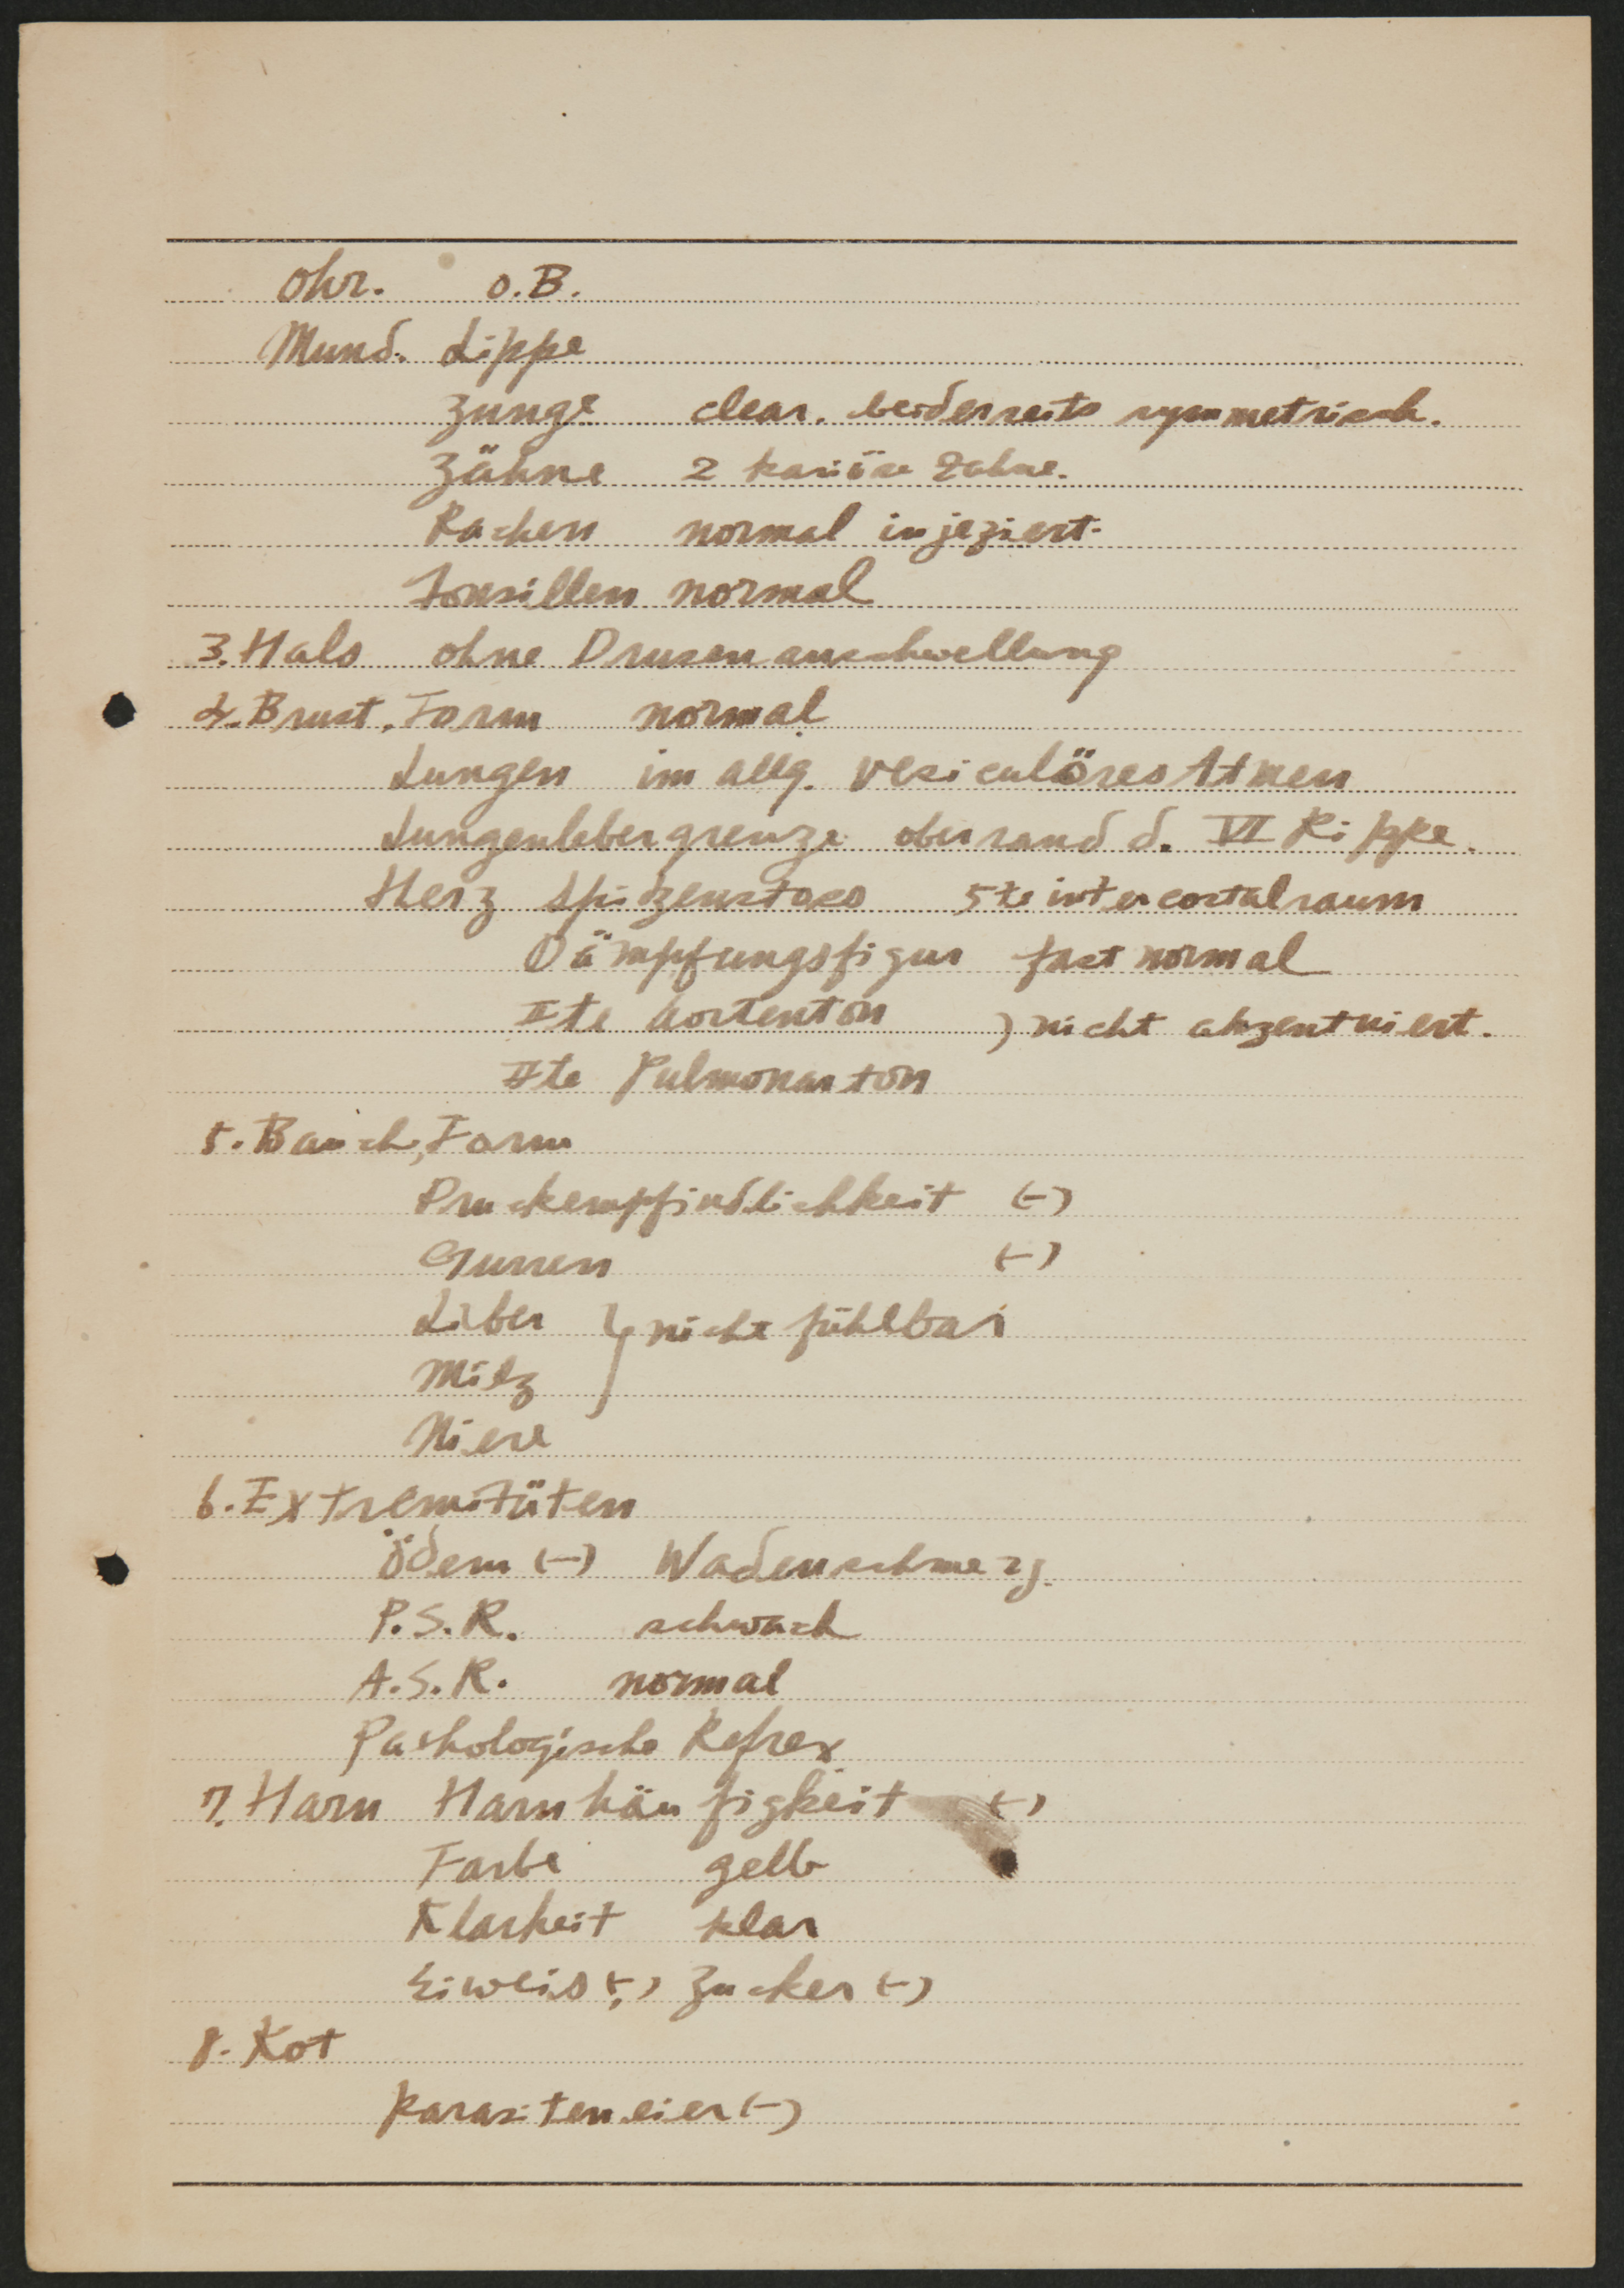 Ohr. o.B.
Mund. Lippe
Zunge clear. beiderseits symmetrisch.
Zähne 2 kariöse Zahne.
Rachen normal injeziert.
Tonsillen normal
3. Hals ohne Drusenanschwellung
4. Brust, Form normal
Lungen im allg. vesiculöres Atmen
Lungenlebergrenze oberrand d. VI Rippe.
Herz Spitzenstoss 5te intercostalraum
Dämpfungsfigur fast normal
IIte Aortenton ) nicht akzentuiert.
IIte Pulmonarton
5. Bauch, Form
Druckempfindlichkeit (-)
Gurren (-)
Leber } nicht fühlbar
Milz
Niere
6. Extremitäten
Ödem (-) Wadenschmerz.
P.S.R. schwach
A.S.R. normal
Pathologische Refrex
7. Harn Harnhäufigkeit (-)
Farbe gelb
Klarheit klar
Eiweis (-) Zucker (-)
8. Kot
Parasiteneier (-)